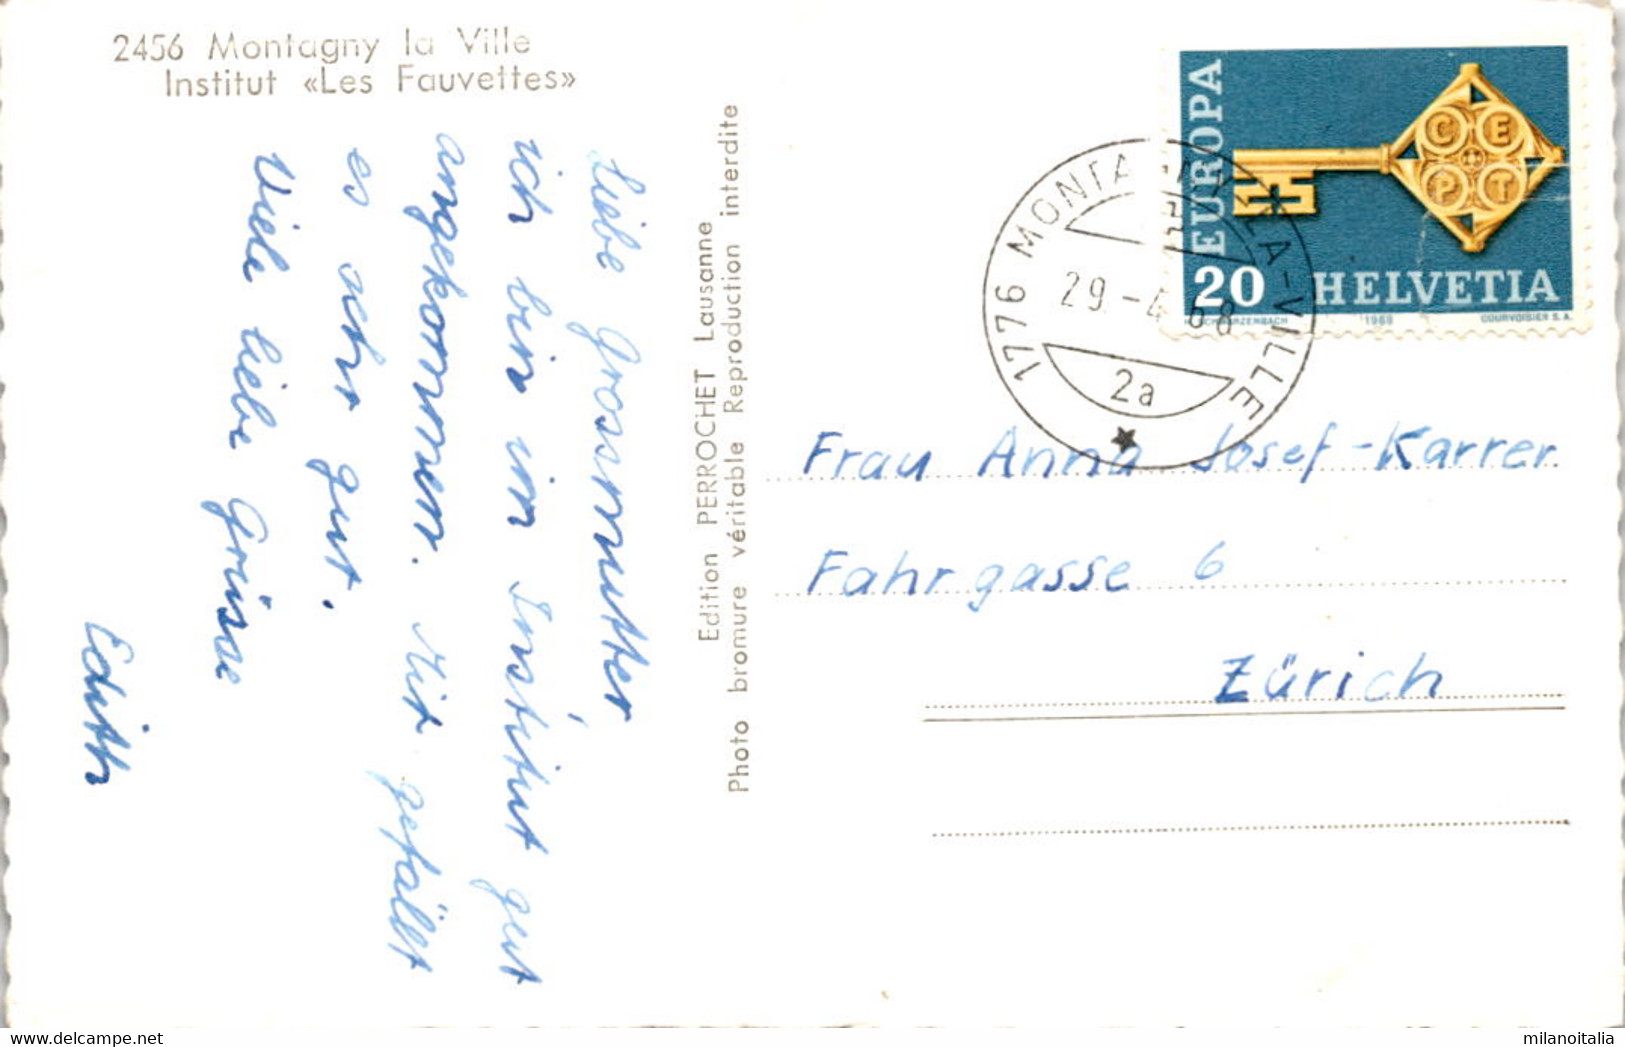 2456 Montagny la Ville
Institut «Les Fauvettes»
Liebe Grossmutter
ich bin im Institut gut
angekommen. Mir gefällt
es sehr gut.
Viele liebe Grüsse
Edith
Edition PERROCHET Lausanne
Photo bromure véritable Reproduction interdite
EUROPA
CEPT
20 HELVETIA
1968
COURVOISIER S.A.
1776 MONTAGNY-LA-VILLE
29.-4.68
2a
Frau Anna Josef-Karrer
Fahrgasse 6
Zürich
milanoitalia